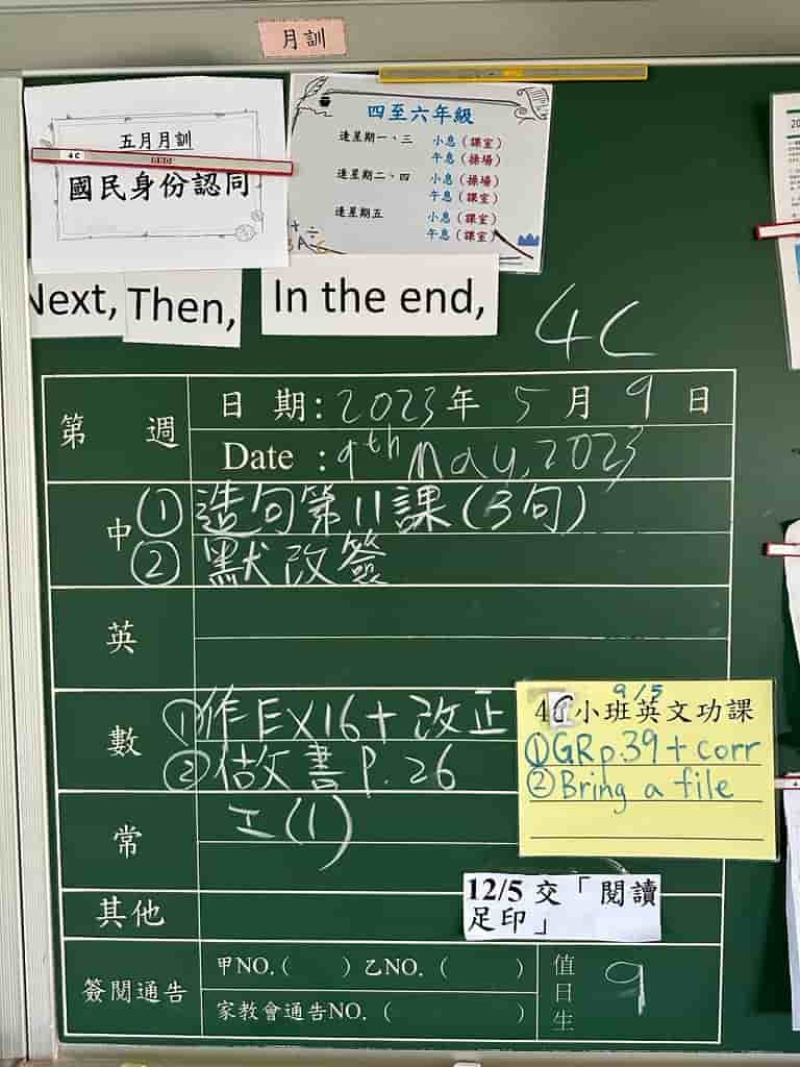 月訓
五月月訓
4C
國民身份認同
四至六年級
逢星期一、三 小息（課室）
午息（操場）
逢星期二、四 小息（操場）
午息（課室）
逢星期五 小息（課室）
午息（課室）
Next, Then, In the end,
4C
第 週 日 期: 2023年 5 月 9 日
Date : 9th May, 2023
中 ① 造句第11課(3句)
② 默改簽
英
數 ① 作EX16+改正
② 做文書P.26
常 工(1)
9/5
4C小班英文功課
①GRp.39+corr
②Bring a file
其他
12/5 交「閱讀
足印」
簽閱通告 甲NO.( ) 乙NO. ( )
家教會通告NO. ( )
值日生 9